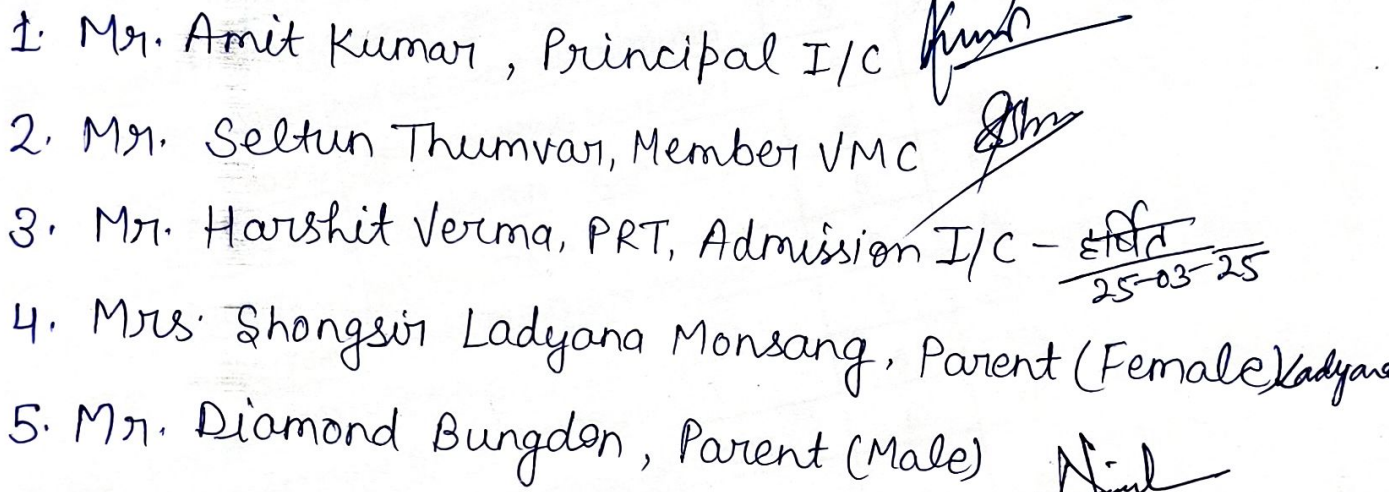 1. Mr. Amit Kumar, Principal I/C
2. Mr. Seltun Thumvar, Member VMC
3. Mr. Harshit Verma, PRT, Admission I/C - हर्षित
25-03-25
4. Mrs. Shongsir Ladyana Monsang, Parent (Female) Ladyana
5. Mr. Diamond Bungdon, Parent (Male)